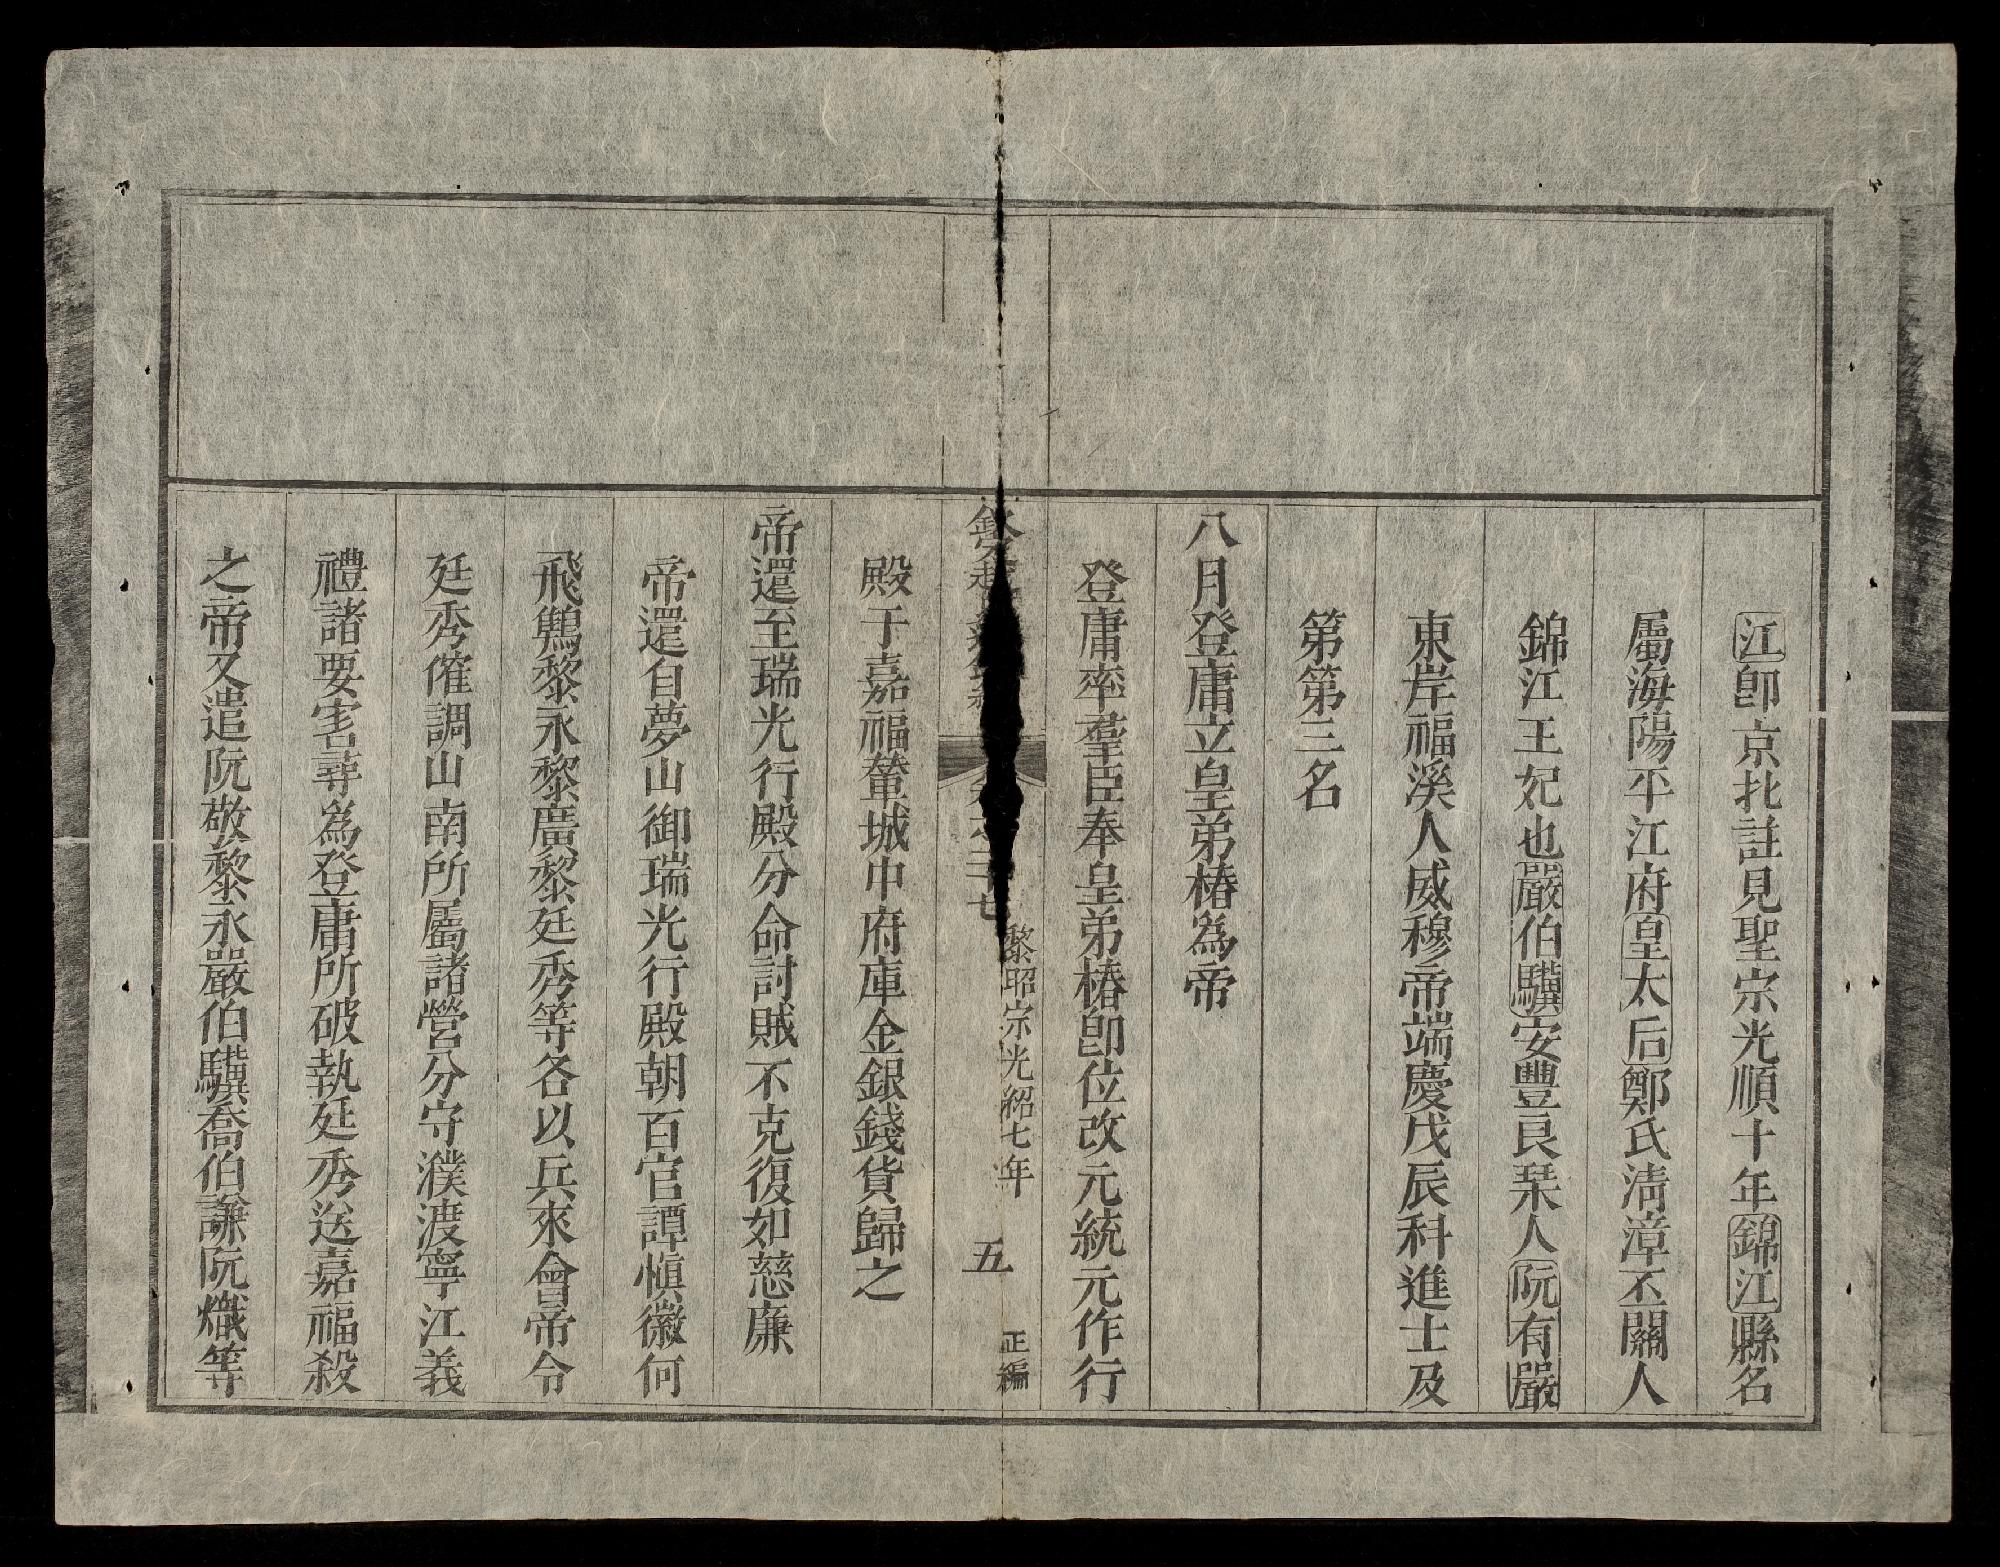 江卽京北註見聖宗光順十年錦江縣名
屬海陽平江府皇太后鄭氏淸漳丕闗人
錦江王妃也嚴伯驥安豐良琹人阮有嚴
東岸福溪人威穆帝端慶戊辰科進士及
第第三名
八月登庸立皇弟椿為帝
登庸率羣臣奉皇弟椿卽位改元統元作行
殿于嘉福輦城中府庫金銀錢貨歸之
欽定越
卷之三十七
黎昭宗光紹七年
五
正編
帝還至瑞光行殿分命討賊不克復如慈廉
帝還自夢山御瑞光行殿朝百官譚愼徽何
飛鷃黎永黎廣黎廷秀等各以兵來會帝令
廷秀催調山南所屬諸營分守濮渡寧江義
禮諸要害尋為登庸所破執廷秀送嘉福殺
之帝又遣阮敬黎永嚴伯驥喬伯謙阮熾等